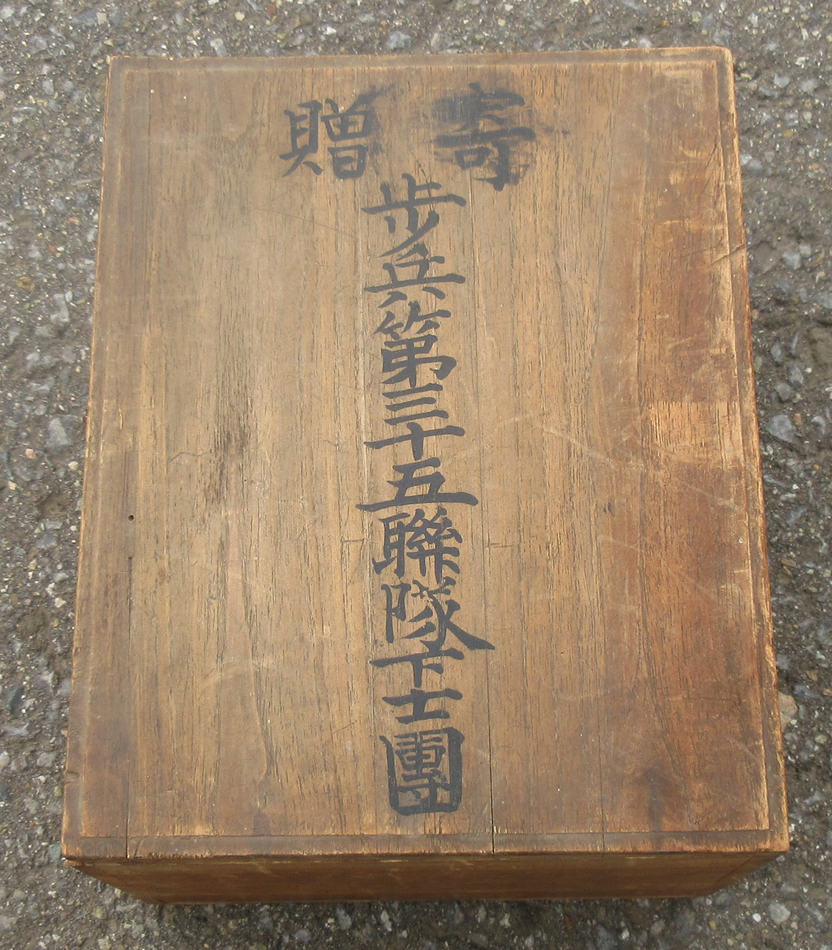 寄贈
歩兵第三十五聯隊下士團